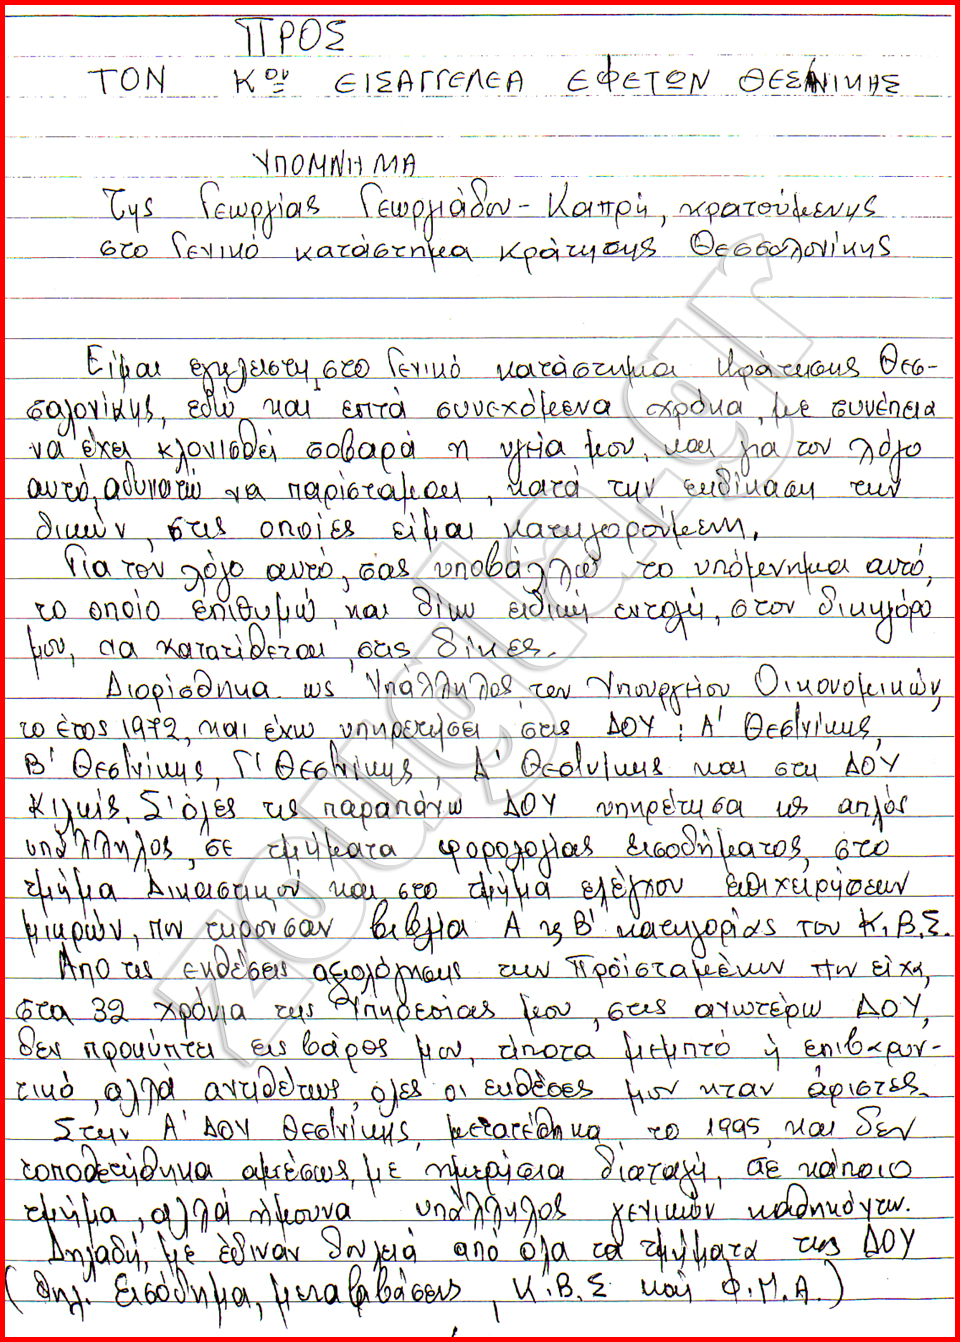 ΠΡΟΣ
ΤΟΝ Κον ΕΙΣΑΓΓΕΛΕΑ ΕΦΕΤΩΝ ΘΕΣ/ΝΙΚΗΣ
ΥΠΟΜΝΗΜΑ
Της Γεωργίας Γεωργιάδου - Καπρή, κρατούμενης
στο Γενικό κατάστημα κράτησης Θεσσαλονίκης
Είμαι έγκλειστη στο Γενικό κατάστημα κράτησης Θεσ-
σαλονίκης, εδώ και επτά συνεχόμενα χρόνια, με συνέπεια
να έχει κλονισθεί σοβαρά η υγεία μου, και για τον λόγο
αυτό, αδυνατώ να παρίσταμαι, κατά την εκδίκαση των
δικών, στις οποίες είμαι κατηγορούμενη.
Για τον λόγο αυτό, σας υποβάλλω το υπόμενημα αυτό,
το οποίο επιθυμώ, και δίνω ειδική εντολή, στον δικηγόρο
μου, να κατατίθεται στις δίκες.
Διορίσθηκα ως Υπάλληλος του Υπουργείου Οικονομικών,
το έτος 1972, και έχω υπηρετήσει στις ΔΟΥ: Α' Θεσ/νίκης,
Β' Θεσ/νίκης, Γ' Θεσ/νίκης, Δ' Θεσ/νίκης και στη ΔΟΥ
Κιλκίς. Σ' όλες τις παραπάνω ΔΟΥ υπηρέτησα ως απλός
υπάλληλος, σε τμήματα φορολογίας εισοδήματος, στο
τμήμα Δικαστικού και στο τμήμα ελέγχου επιχειρήσεων
μικρών, που τηρούσαν βιβλία Α κ Β' κατηγορίας του Κ.Β.Σ.
Από τις εκθέσεις αξιολόγησης των Προϊσταμένων που είχα,
στα 32 χρόνια της Υπηρεσίας μου, στις ανωτέρω ΔΟΥ,
δεν προκύπτει εις βάρος μου, τίποτα μεμπτό ή επιβαρυν-
τικό, αλλά αντιθέτως, όλες οι εκθέσεις μου ήταν άριστες.
Στην Α' ΔΟΥ Θεσ/νίκης, μετατέθηκα το 1995, και δεν
τοποθετήθηκα αμέσως, με ημερήσια διαταγή, σε κάποιο
τμήμα, αλλά ήμουνα υπάλληλος γενικών καθηκόντων.
Δηλαδή, με έδιναν δουλειά από όλα τα τμήματα της ΔΟΥ
(δηλ. Εισόδημα, μεταβιβάσεις, Κ.Β.Σ και Φ.Μ.Α.)
zougla.gr